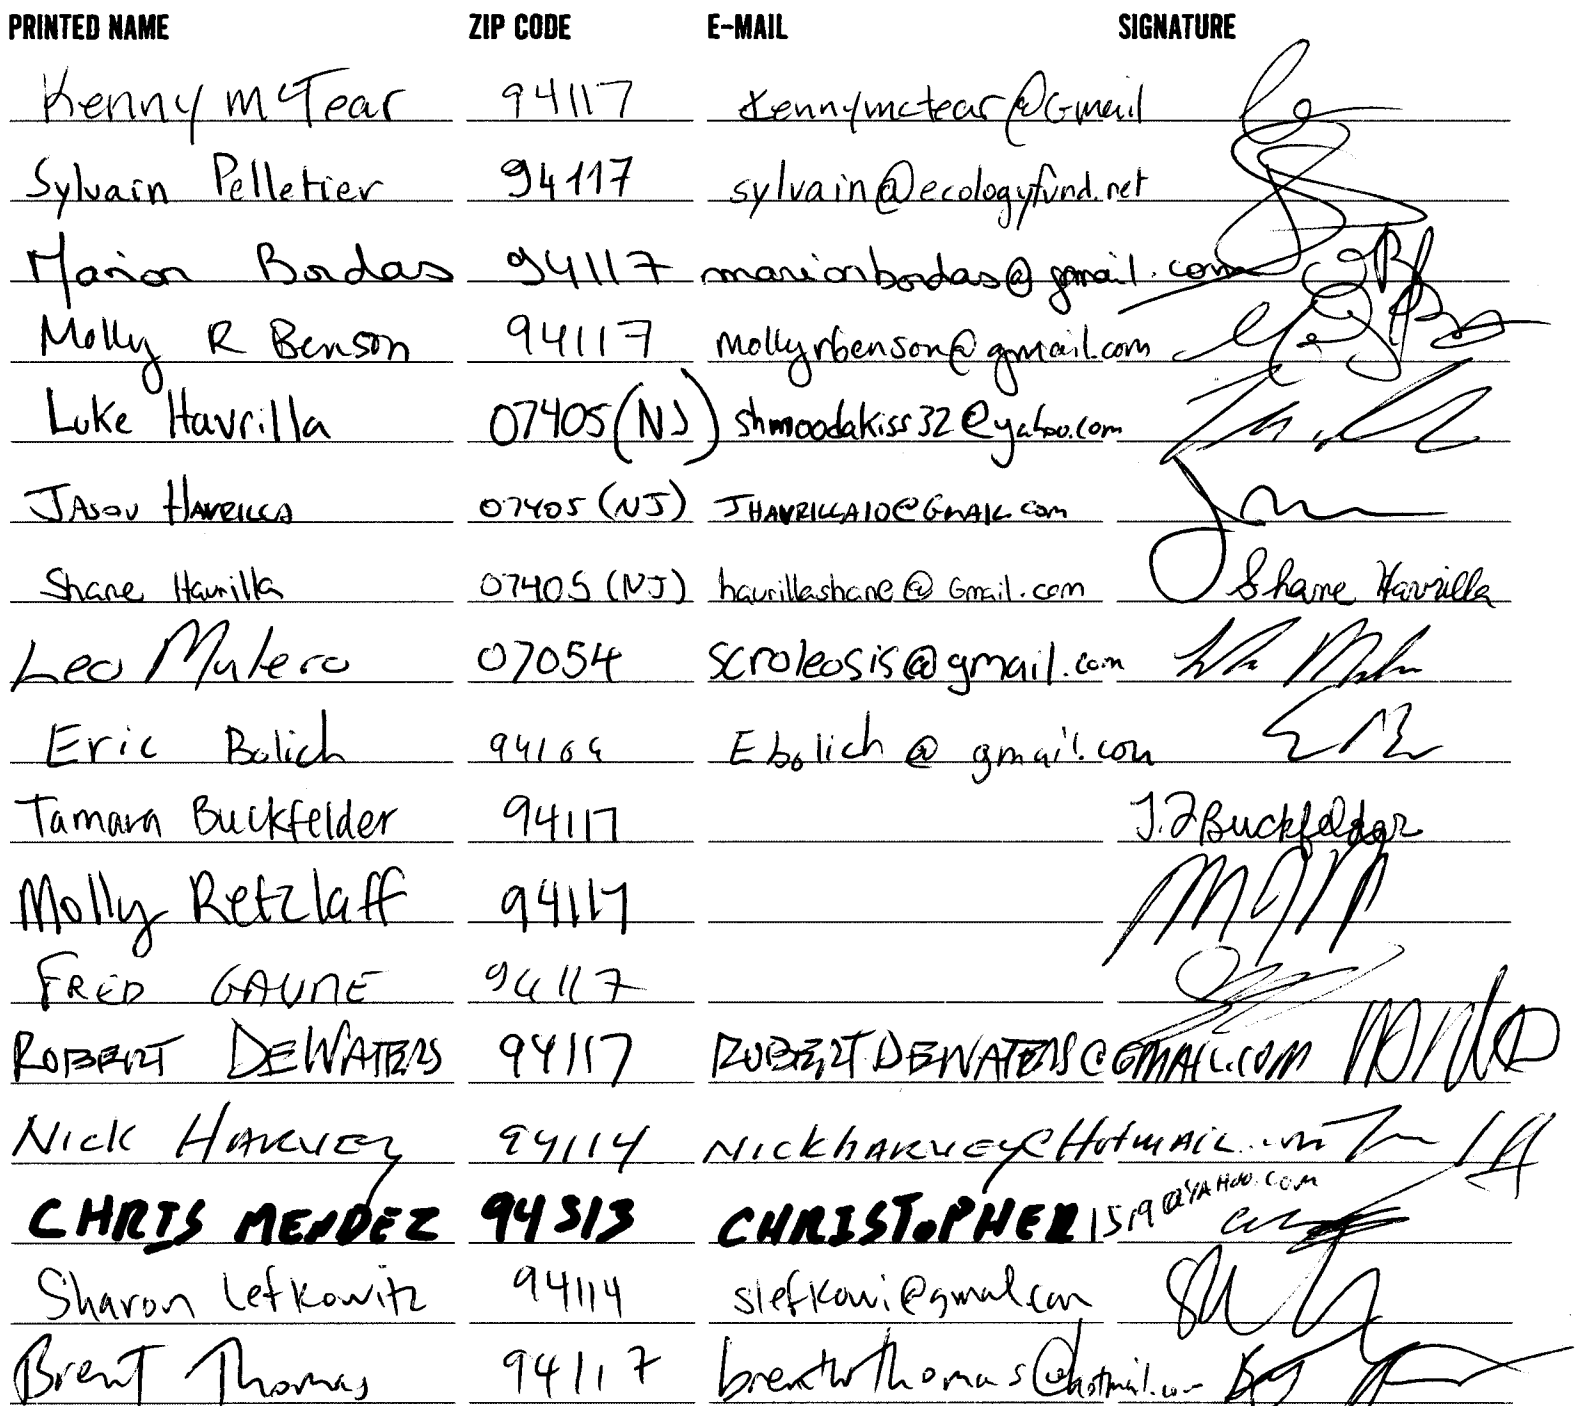 PRINTED NAME ZIP CODE E-MAIL SIGNATURE
Kenny McTear 94117 Kennymctear@Gmail
Sylvain Pelletier 94117 sylvain@ecologyfund.net
Marion Bordas 94117 marionbordas@gmail.com
Molly R Benson 94117 mollyrbenson@gmail.com
Luke Havrilla 07405 (NJ) shmoodakiss32@yahoo.com
JASON HAVRILLA 07405 (NJ) JHAVRILLA10@GMAIL.com
Shane Havrilla 07405 (NJ) havrillashane@Gmail.com Shane Havrilla
Leo Mulero 07054 scroleosis@gmail.com
Eric Bolich Ebolich@gmail.com
Tamara Buckfelder 94117 T.J Buckfelder
Molly Retzlaff 94117
FRED 94117
ROBERT DEWATERS 94117 ROBERT.DEWATERS@GMAIL.COM
NICK HARVEY 94114 NICKHARVEY@HOTMAIL.com
CHRIS MENDEZ 94313 CHRISTOPHER1519@YAHOO.COM
Sharon Lefkowitz 94114 slefkowi@gmail.com
Brent Thomas 94117 @hotmail.com